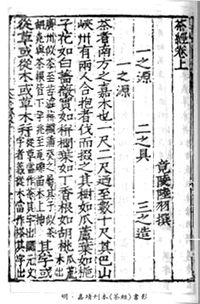 茶經卷上
竟陵陸羽撰
一之源 二之具 三之造
一之源
茶者南方之嘉木也一尺二尺迺至數十尺其巴山
峽州有兩人合抱者伐而掇之其樹如瓜蘆葉如梔
子花如白薔薇實如栟櫚葉如丁香根如胡桃
其字或
從草或從木或草木并
明·嘉靖刊本《茶經》書影